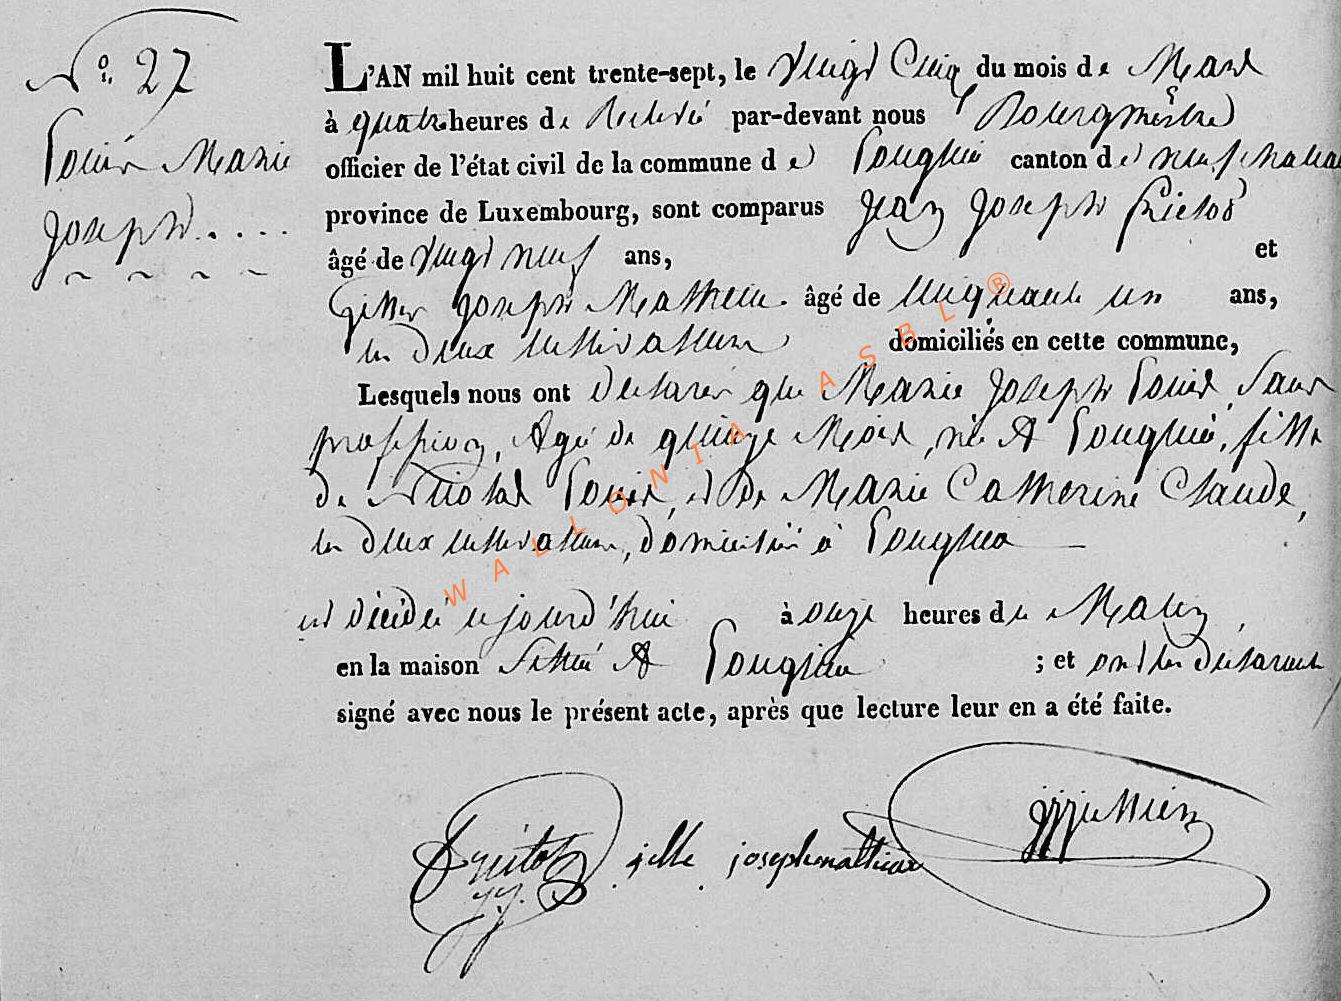 N° 27
Marie
Joseph ....
~ ~ ~ ~
L'AN mil huit cent trente-sept, le Vingt Cinq du mois de Mars
à quatre heures de Relevé par-devant nous Bourgmestre
officier de l'état civil de la commune de Longlier canton de neufchateau
province de Luxembourg, sont comparus Jean Joseph
âgé de Vingt neuf ans, et
Gilles Joseph Mathieu âgé de Cinquante un ans,
les deux cultivateurs domiciliés en cette commune,
Lesquels nous ont Déclaré que Marie Joseph Sans
profession, Agée de quinze Mois, née A Longlier, fille
de Nicolas et de Marie Catherine Claude,
les deux cultivateurs, domiciliés à Longlier
est décédé aujourd'hui à onze heures du Matin,
en la maison Située A Longlier ; et ont les déclarants
signé avec nous le présent acte, après que lecture leur en a été faite.
gille joseph mathieu
WALLONIA ASBL ®